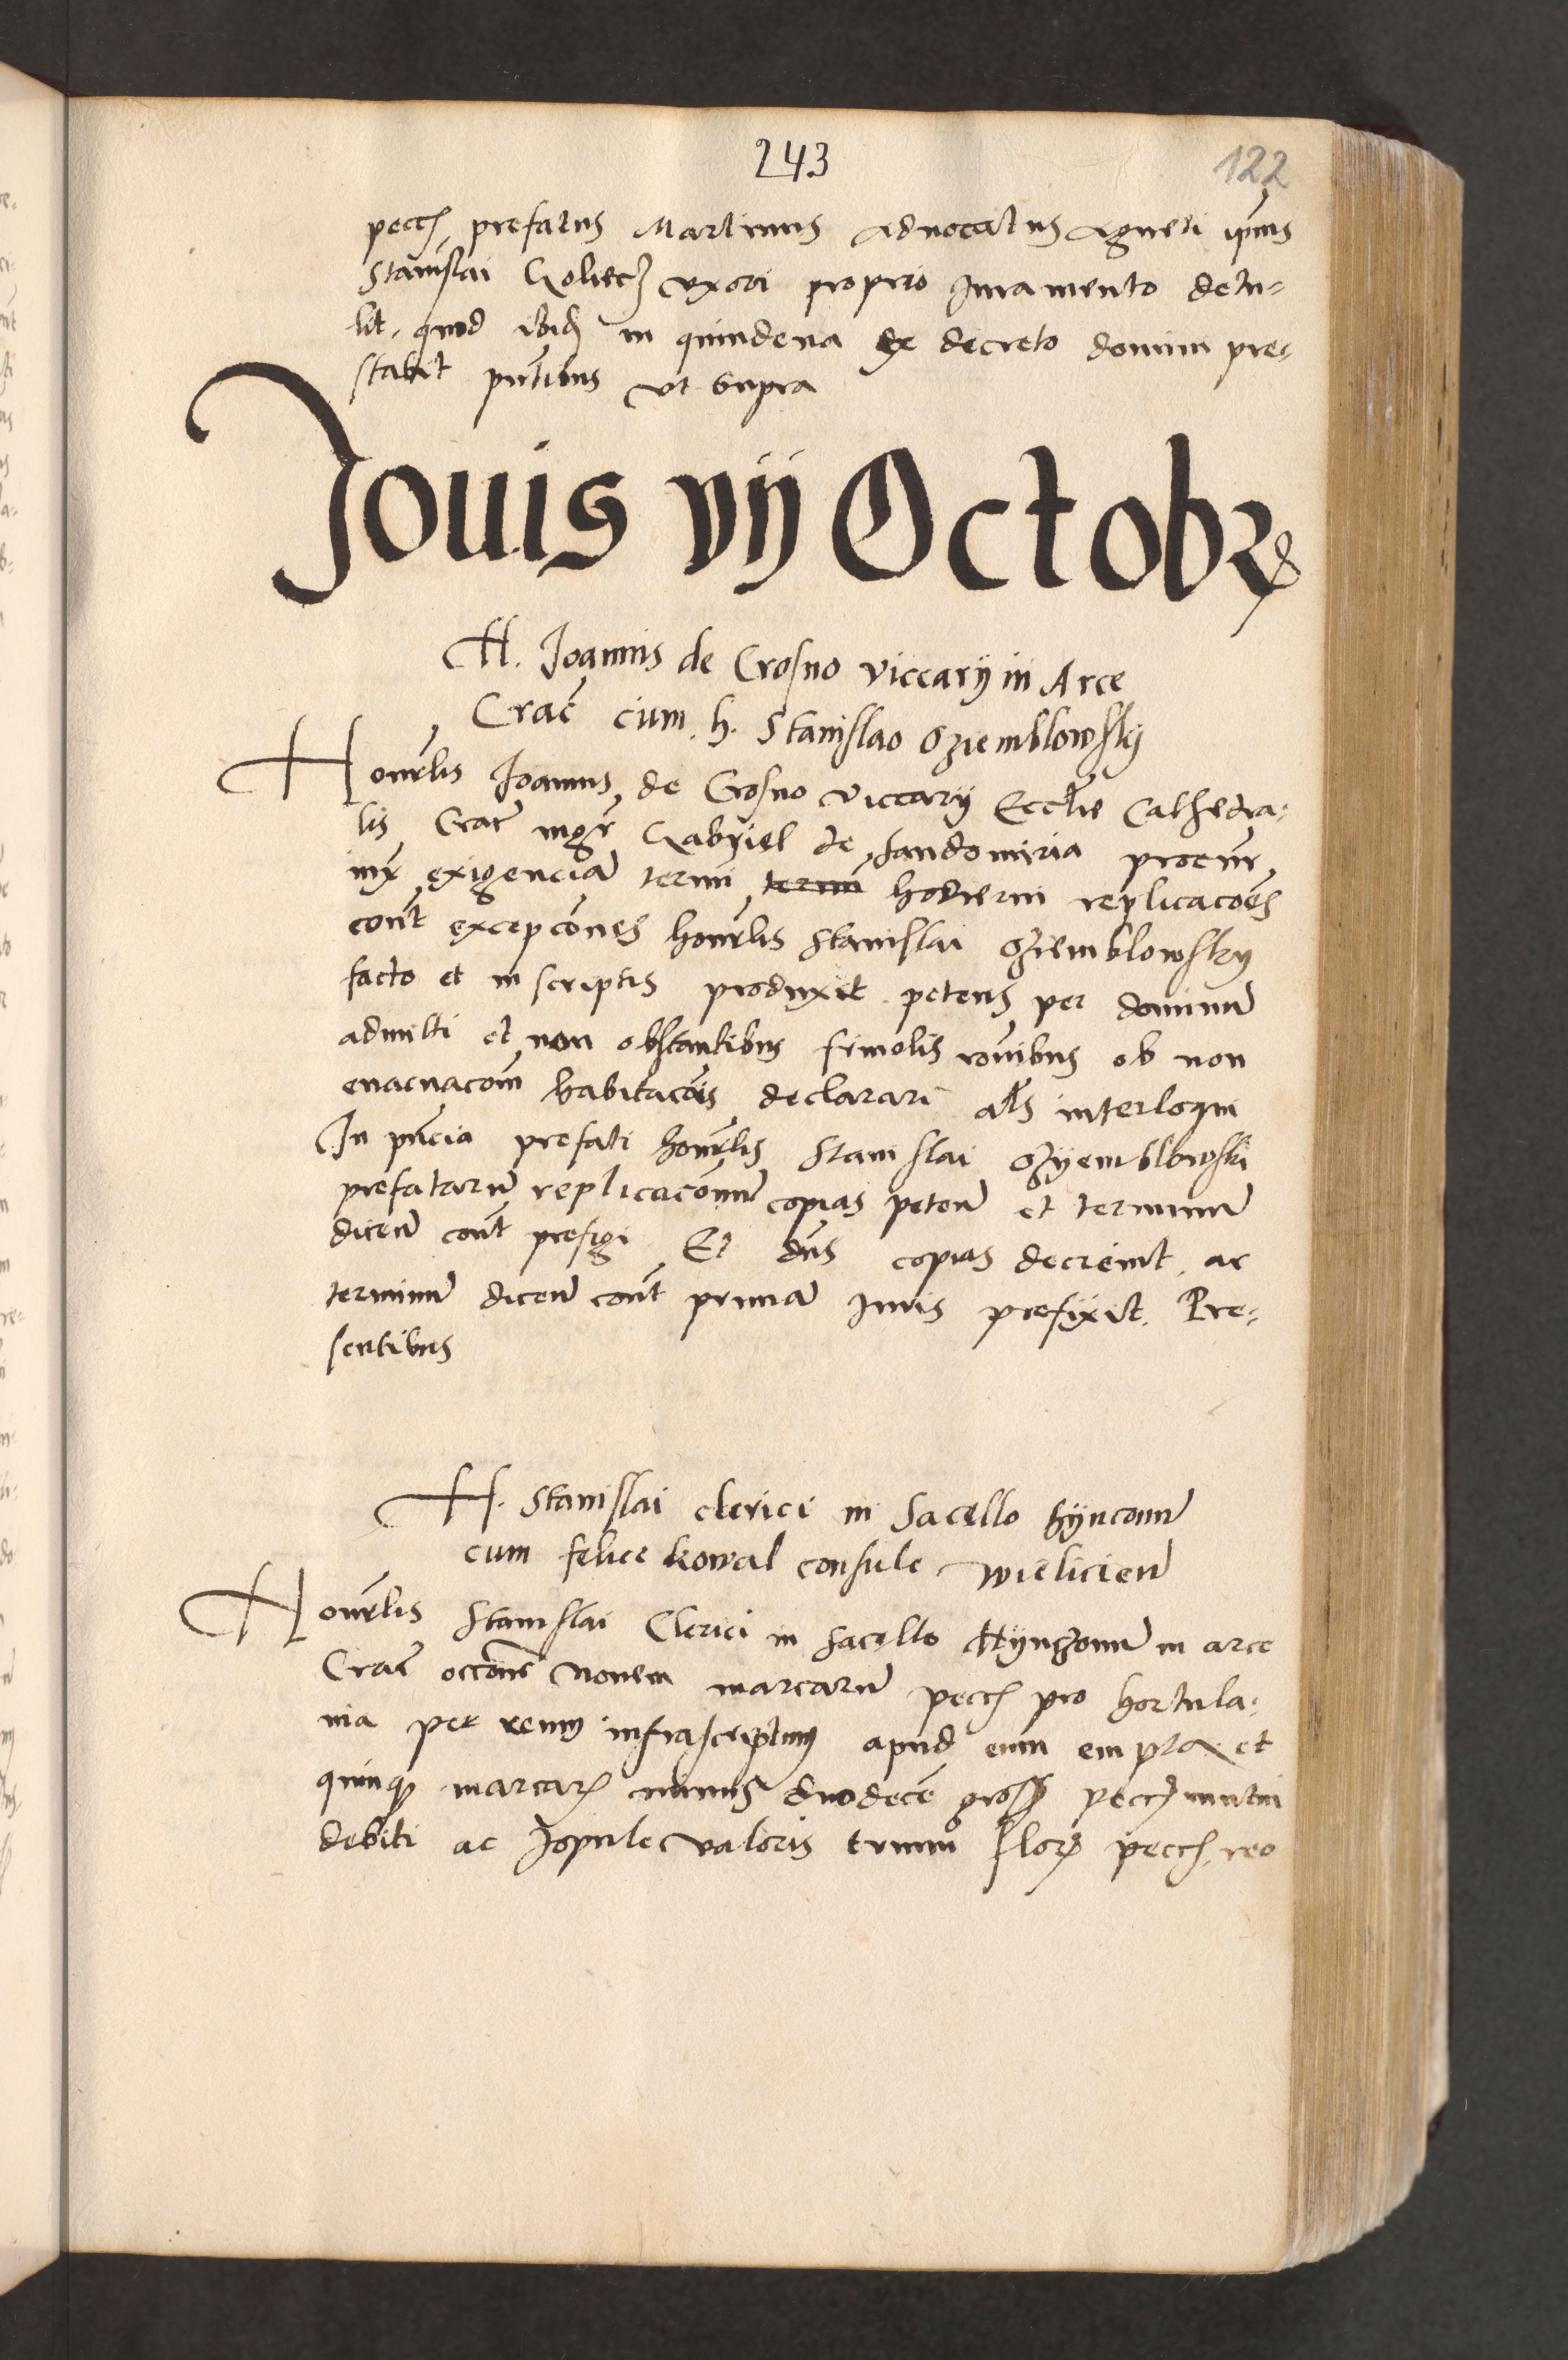 243
122
pecc prefatus Martinus advocatus Agneti ipius
Stanislai Goliecz uxori proprio Juramento detu-
lit, quod ibid in quindena ex decreto domini pre-
stabit pntibus ut supra
Jouis vij Octobr
H. Joannis de Crosno viccarij in Arce
Crac cum h. Stanislao Gziemblowskij
Honrlis Joannis de Crosno viccarij Ecclie Cathedra-
lis Crac mgr Gabriel de Sandomiria procur
iux exigencia termi termi hodierni replicacoes
cont excepcones honrlis Stanislai Gziemblowsky
facto et in scriptis produxit petens per dominu
admitti et non obstantibus friuolis ronibus ob non
euacuacom habitacois declarari als interloqui
In pncia prefati honrlis Stanislai Gzyemblowski
prefataru replicaconu copias peten et terminu
dicen cont prefigi Et dns copias decreuit ac
terminu dicen cont prima Juris prefixit. Pre-
sentibus
H. Stanislai clerici in Sacello hynconu
cum felice kowal consule wielicien
Honrlis Stanislai Clerici in Sacello Hynczonu in arce
Crac occone novem marcaru pecc pro hortula-
nia per reum infrascriptum apud eum empta et
quinqs marcar minus duodece gross pecc mutui
debiti ac Jopule valoris trium flor pecc, reo